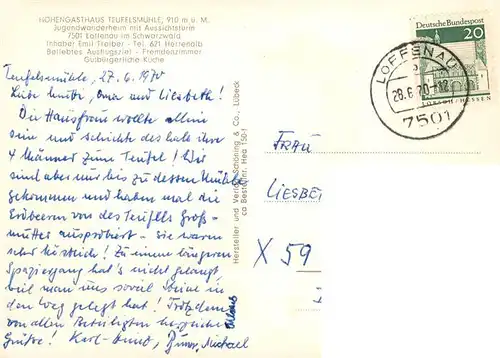 HÖHENGASTHAUS TEUFELSMÜHLE, 910 m ü. M.
Jugendwanderheim mit Aussichtsturm
7501 Loffenau im Schwarzwald
Inhaber Emil Treiber - Tel. 621 Herrenalb
Beliebtes Ausflugsziel - Fremdenzimmer
Gutbürgerliche Küche
Teufelsmühle, 27.6.1970
Liebe Mutter, Oma und Liesbeth!
Die Hausfrau wollte allein
sein und schickte deshalb ihre
4 Männer zum Teufel! Wir
sind aber nur bis zu dessen Mühle
gekommen und haben mal die
Erdbeeren von des Teufels Groß-
mutter ausprobiert - sie waren
sehr köstlich! Zu einem längeren
Spaziergang hat's nicht gelangt,
weil man uns soviel Steine in
den Weg gelegt hat! Trotzdem
von allen Beteiligten herzliche
Grüße! Karl-Heinz, Michael
Hersteller und Verlag Schöning & Co., Lübeck
Bestellnr. Hea 150
Deutsche Bundespost
20
LORSCH/HESSEN
LOFFENAU
28.6.70-12
7501
FRAU
LIESBE
X 59